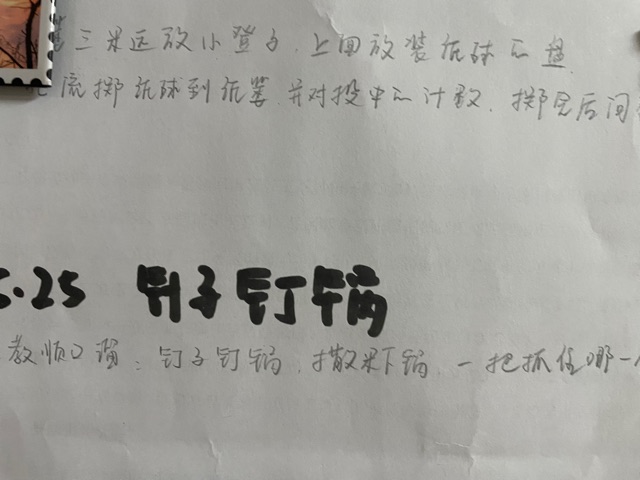 三米远放小凳子，上面放装纸球的盘
流掷纸球到纸篓并对投中的计数，掷完后间
5.25 钉子钉锅
教顺口溜：钉子钉锅，撒米下锅，一把抓住哪一